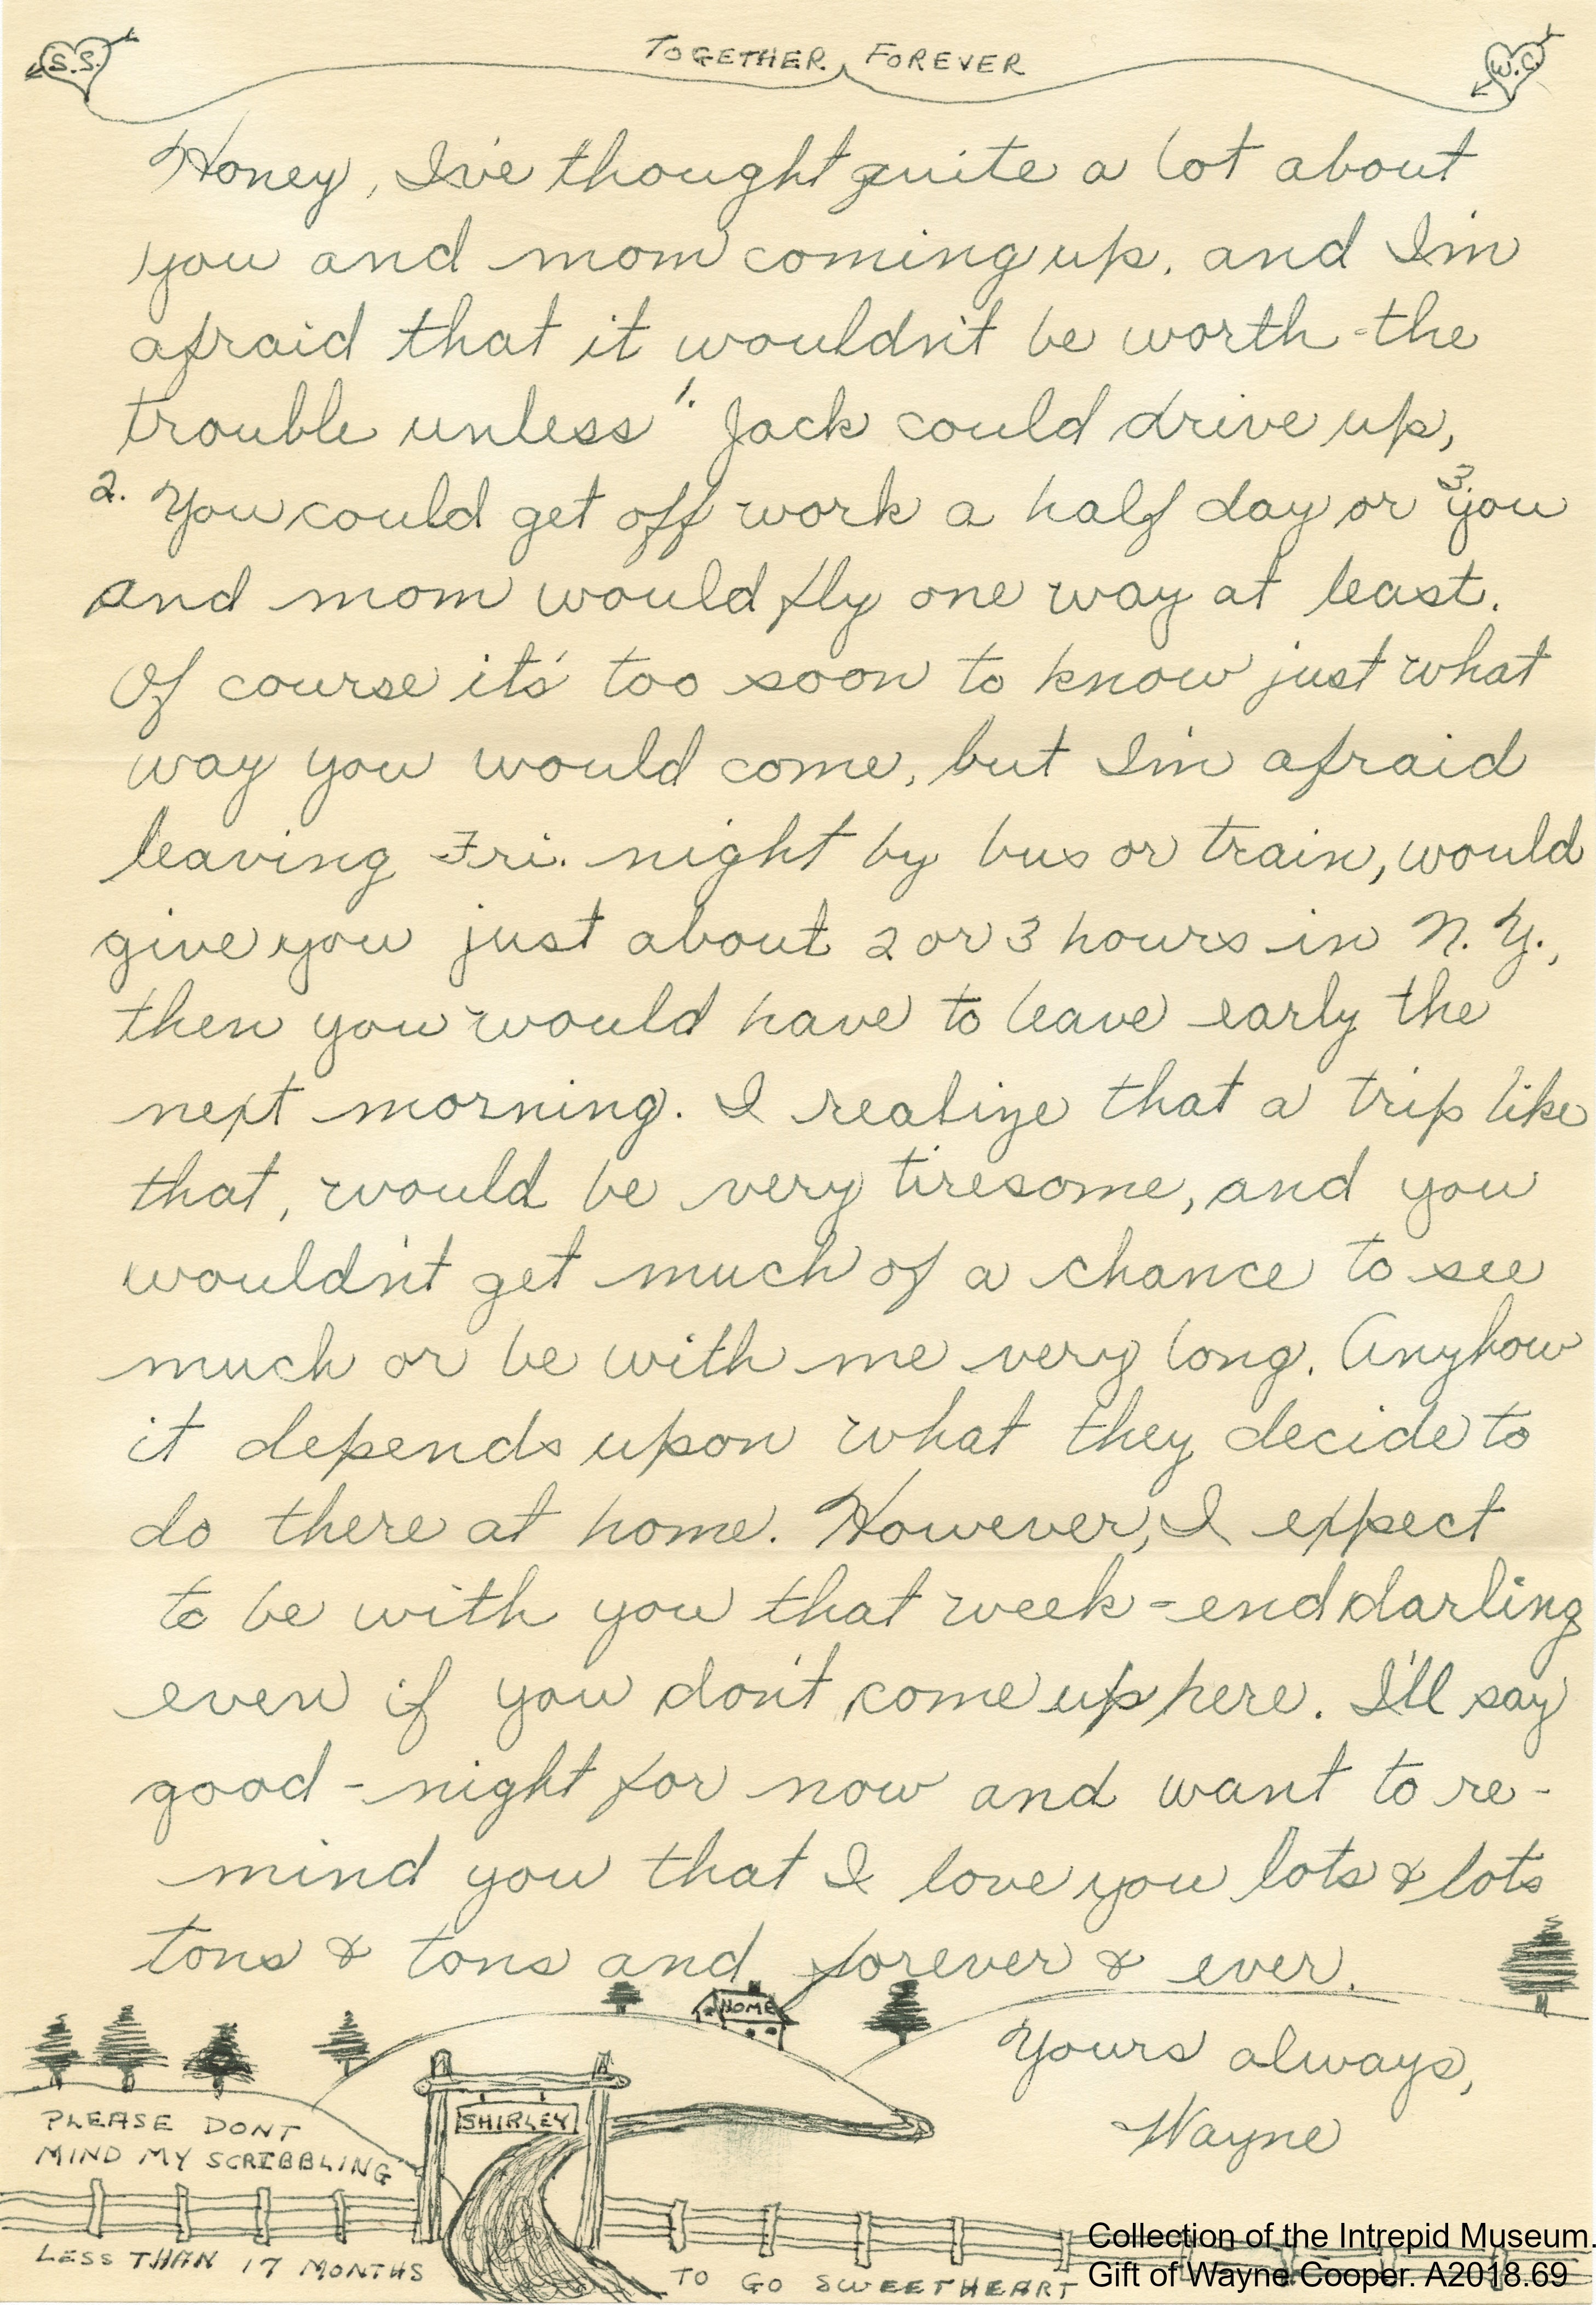 S.S. TOGETHER FOREVER W.C.
Honey, I've thought quite a lot about
you and mom coming up, and I'm
afraid that it wouldn't be worth-the
trouble unless 1. Jack could drive up,
2. You could get off work a half day or 3. you
and mom would fly one way at least.
Of course it's too soon to know just what
way you would come, but I'm afraid
leaving Fri. night by bus or train, would
give you just about 2 or 3 hours in N.Y.,
then you would have to leave early the
next morning. I realize that a trip like
that, would be very tiresome, and you
wouldn't get much of a chance to see
much or be with me very long. Anyhow
it depends upon what they decide to
do there at home. However, I expect
to be with you that week-end darling
even if you don't come up here. I'll say
good-night for now and want to re-
mind you that I love you lots & lots
tons & tons and forever & ever.
HOME
Yours always,
Wayne
SHIRLEY
PLEASE DONT
MIND MY SCRIBBLING
LESS THAN 17 MONTHS TO GO SWEETHEART
Collection of the Intrepid Museum.
Gift of Wayne Cooper. A2018.69